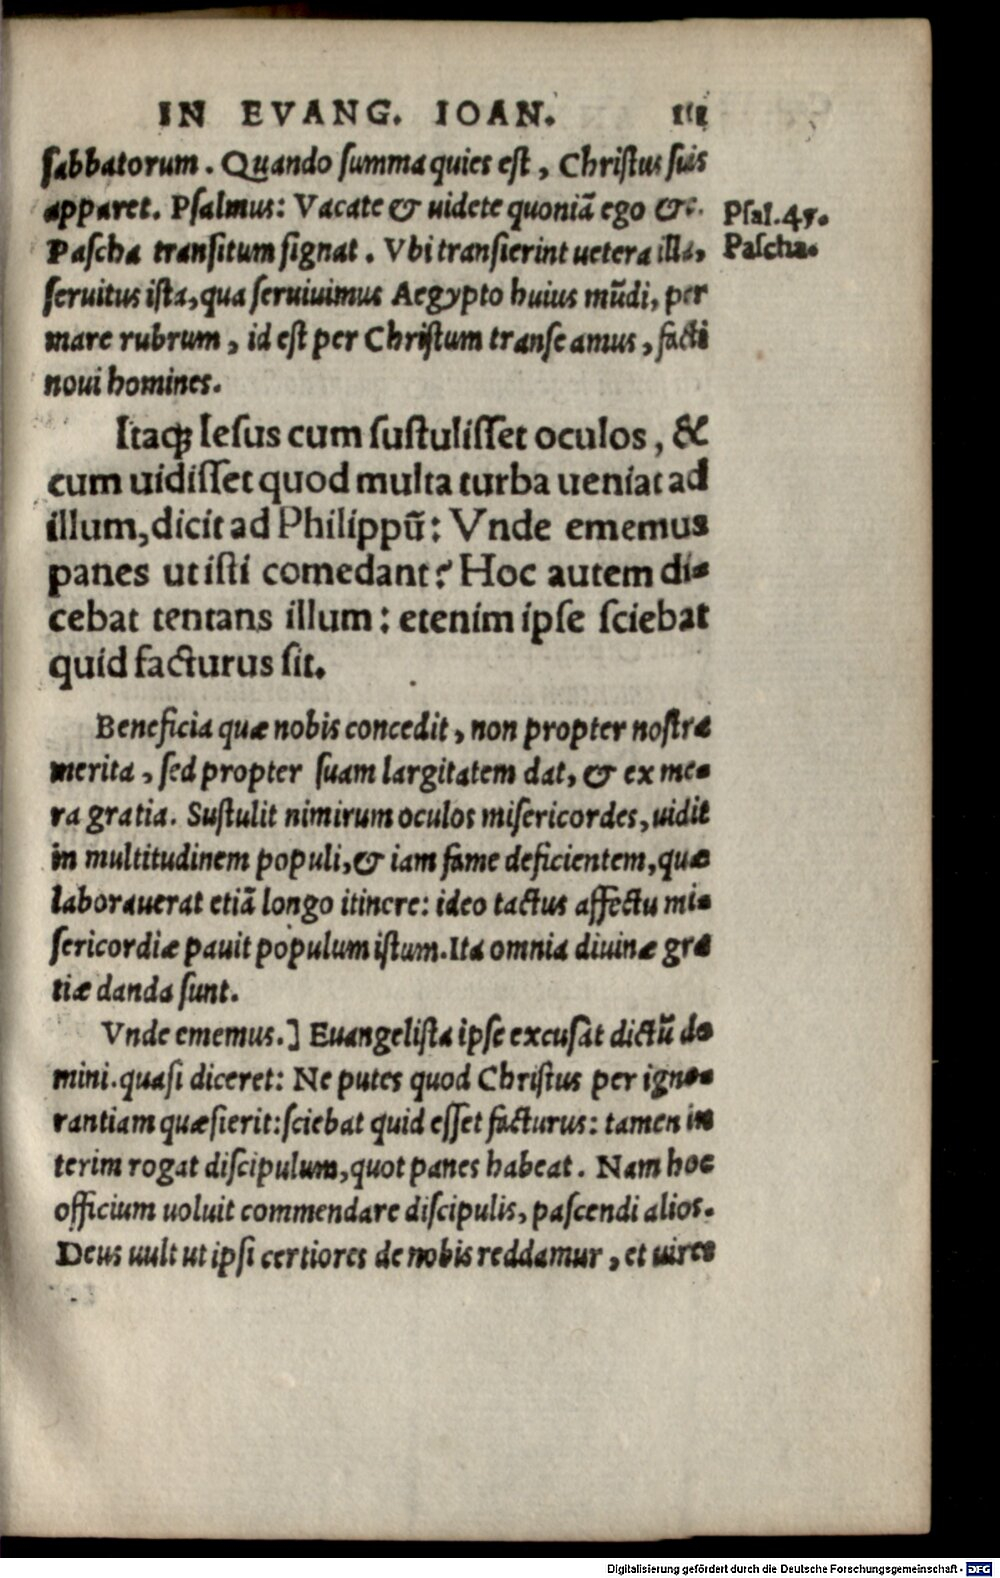 IN EVANG. IOAN. 111
sabbatorum. Quando summa quies est, Christus suis
apparet. Psalmus: Vacate & uidete quoniã ego &c.
Psal. 45.
Pascha transitum signat. Vbi transierint uetera illa,
Pascha.
seruitus ista, qua seruiuimus Aegypto huius mũdi, per
mare rubrum, id est per Christum transeamus, facti
noui homines.
Itaq; Iesus cum sustulisset oculos, &
cum uidisset quod multa turba ueniat ad
illum, dicit ad Philippũ: Vnde ememus
panes ut isti comedant? Hoc autem di-
cebat tentans illum: etenim ipse sciebat
quid facturus sit.
Beneficia quæ nobis concedit, non propter nostra
merita, sed propter suam largitatem dat, & ex me-
ra gratia. Sustulit nimirum oculos misericordes, uidit
in multitudinem populi, & iam fame deficientem, quæ
laborauerat etiã longo itinere: ideo tactus affectu mi-
sericordiæ pauit populum istum. Ita omnia diuinæ gra
tiæ danda sunt.
Vnde ememus.] Euangelista ipse excusat dictũ do
mini. quasi diceret: Ne putes quod Christus per igno-
rantiam quæsierit: sciebat quid esset facturus: tamen in
terim rogat discipulum, quot panes habeat. Nam hoc
officium uoluit commendare discipulis, pascendi alios.
Deus uult ut ipsi certiores de nobis reddamur, et uires
Digitalisierung gefördert durch die Deutsche Forschungsgemeinschaft - DFG